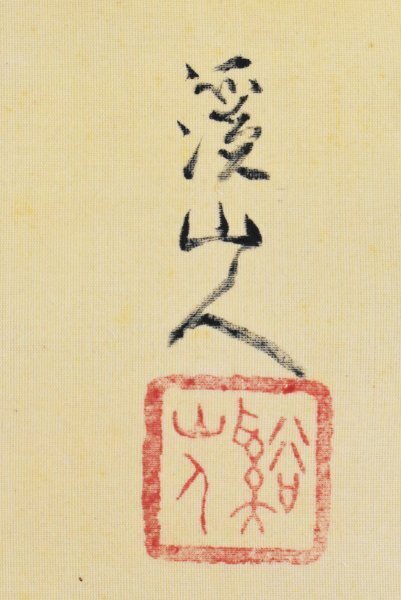 溪山人
谿山人